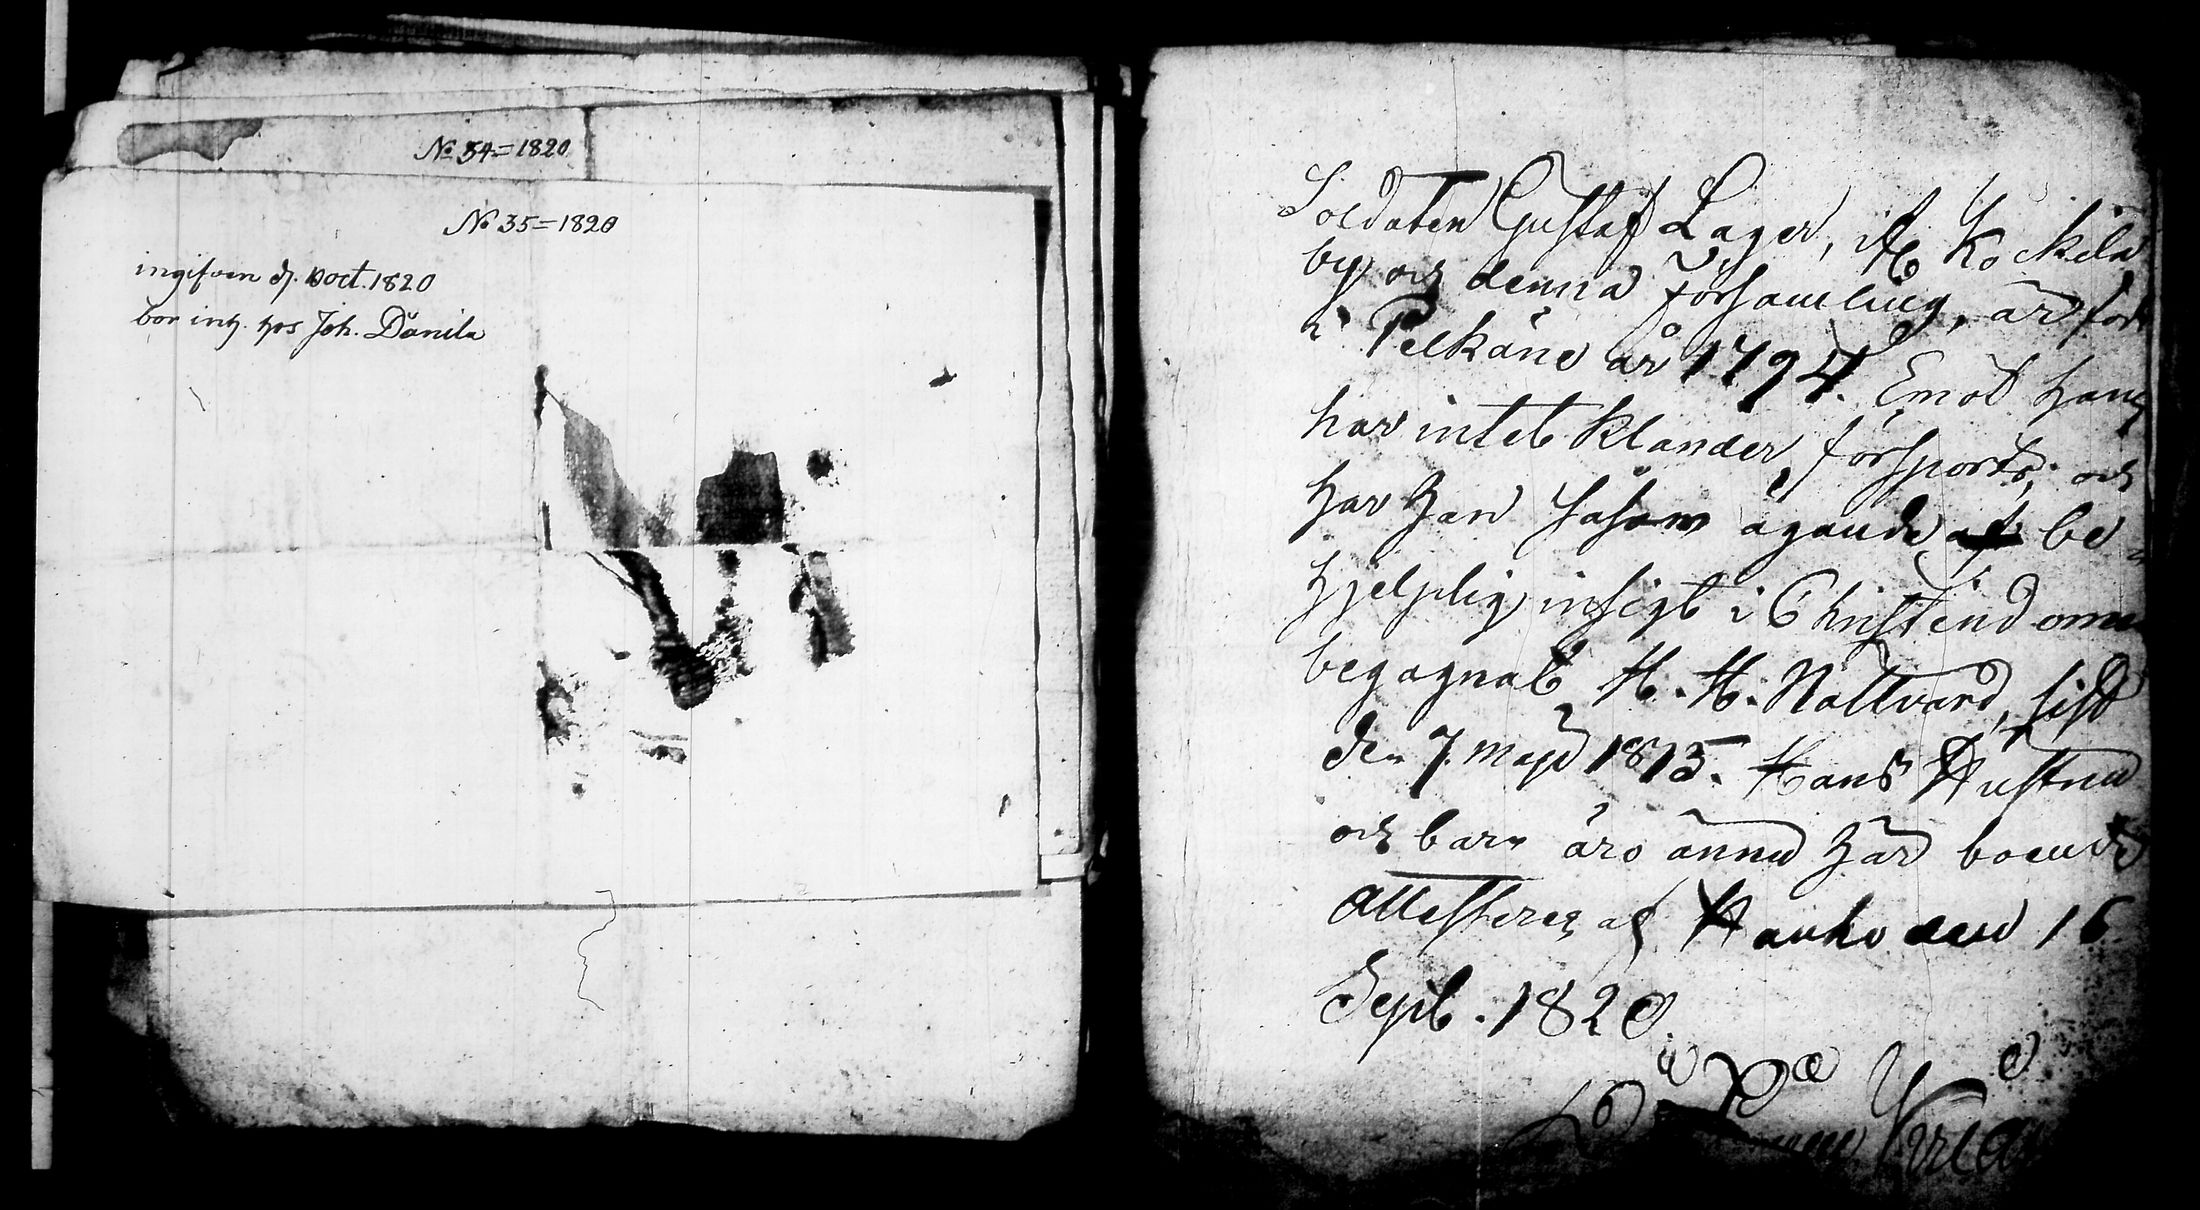 No 34=1820
No 35=1820
ingifven d. 10 oct. 1820
bor inh. hos Joh. Danila
Soldaten Gustaf Lager, if Kockila
by och denna församling, är född
i Pelkäne år 1794. Emot hans
har intet klander försports, och
har han såsom ägande af be-
hjelplig insigt i Christendomen
begagnat H. H. Nattvard, sist
den 7. Maji 1815. Hans Hustru
och barn äro ännu här boende
attesteras af Hauho den 16
Sept. 1820.